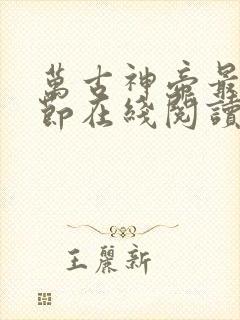 萬古神帝最
節在綫閱讀
王麗新